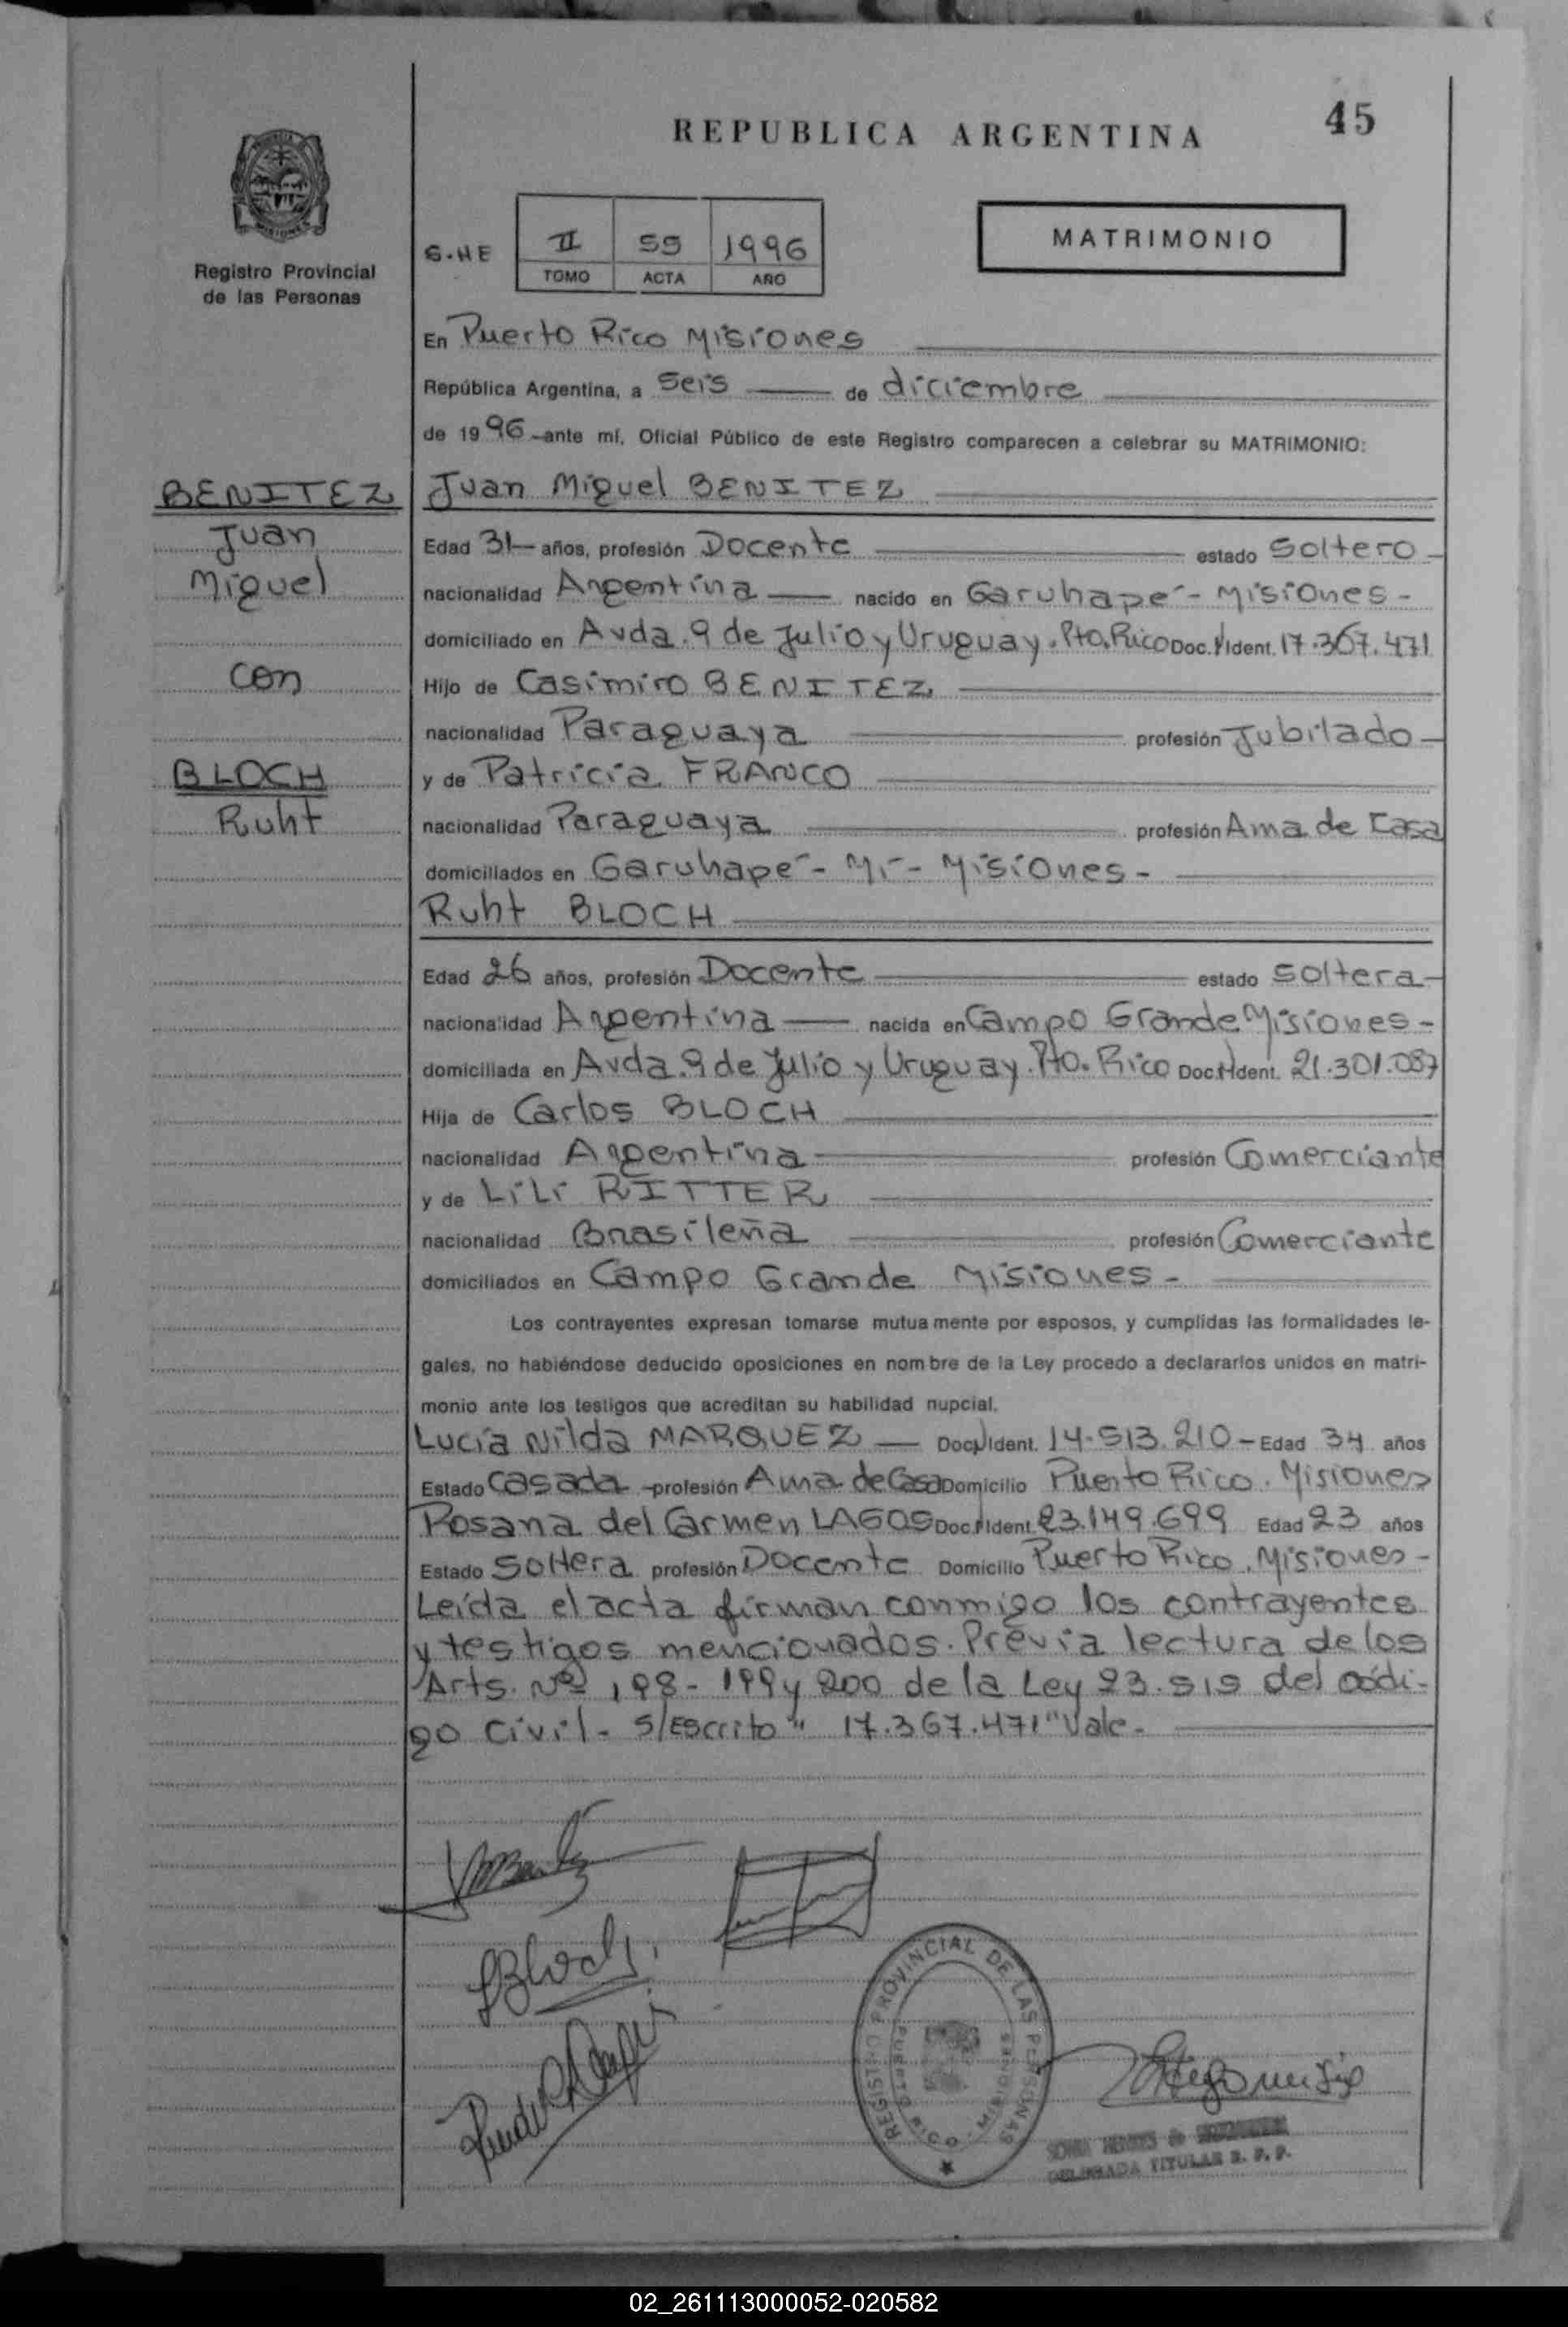 REPUBLICA ARGENTINA
45
Registro Provincial
de las Personas
S.HE
II 55 1996
TOMO ACTA AÑO
MATRIMONIO
En Puerto Rico Misiones
República Argentina, a Seis de diciembre
de 1996 ante mí, Oficial Público de este Registro comparecen a celebrar su MATRIMONIO:
BENITEZ
Juan
Miguel
con
BLOCH
Ruht
Juan Miguel BENITEZ
Edad 31 años, profesión Docente estado Soltero
nacionalidad Argentina nacido en Garuhapé - Misiones -
domiciliado en Avda. 9 de Julio y Uruguay. Pto. Rico Doc. Ident. 17.367.471
Hijo de Casimiro BENITEZ
nacionalidad Paraguaya profesión Jubilado
y de Patricia FRANCO
nacionalidad Paraguaya profesión Ama de Casa
domiciliados en Garuhapé - Mí - Misiones -
Ruht BLOCH
Edad 26 años, profesión Docente estado Soltera
nacionalidad Argentina nacida en Campo Grande Misiones -
domiciliada en Avda. 9 de Julio y Uruguay. Pto. Rico Doc. Ident. 21.301.087
Hija de Carlos BLOCH
nacionalidad Argentina profesión Comerciante
y de Lili RITTER
nacionalidad Brasileña profesión Comerciante
domiciliados en Campo Grande Misiones -
Los contrayentes expresan tomarse mutuamente por esposos, y cumplidas las formalidades le-
gales, no habiéndose deducido oposiciones en nombre de la Ley procedo a declararlos unidos en matri-
monio ante los testigos que acreditan su habilidad nupcial.
Lucía Nilda MARQUEZ Doc. Ident. 14.513.210 - Edad 34 años
Estado Casada profesión Ama de Casa Domicilio Puerto Rico. Misiones
Rosana del Carmen LAGOS Doc. Ident. 23.149.699 Edad 23 años
Estado Soltera profesión Docente Domicilio Puerto Rico. Misiones -
Leída el acta firman conmigo los contrayentes
y testigos mencionados. Previa lectura de los
Arts. Nº 198 - 199 y 200 de la Ley 23.515 del códi-
go civil - S/Escrito "17.367.471" Vale -
REGISTRO PROVINCIAL DE LAS PERSONAS
PUERTO RICO - MISIONES
DELEGADA TITULAR R. P. P.
02_261113000052-020582